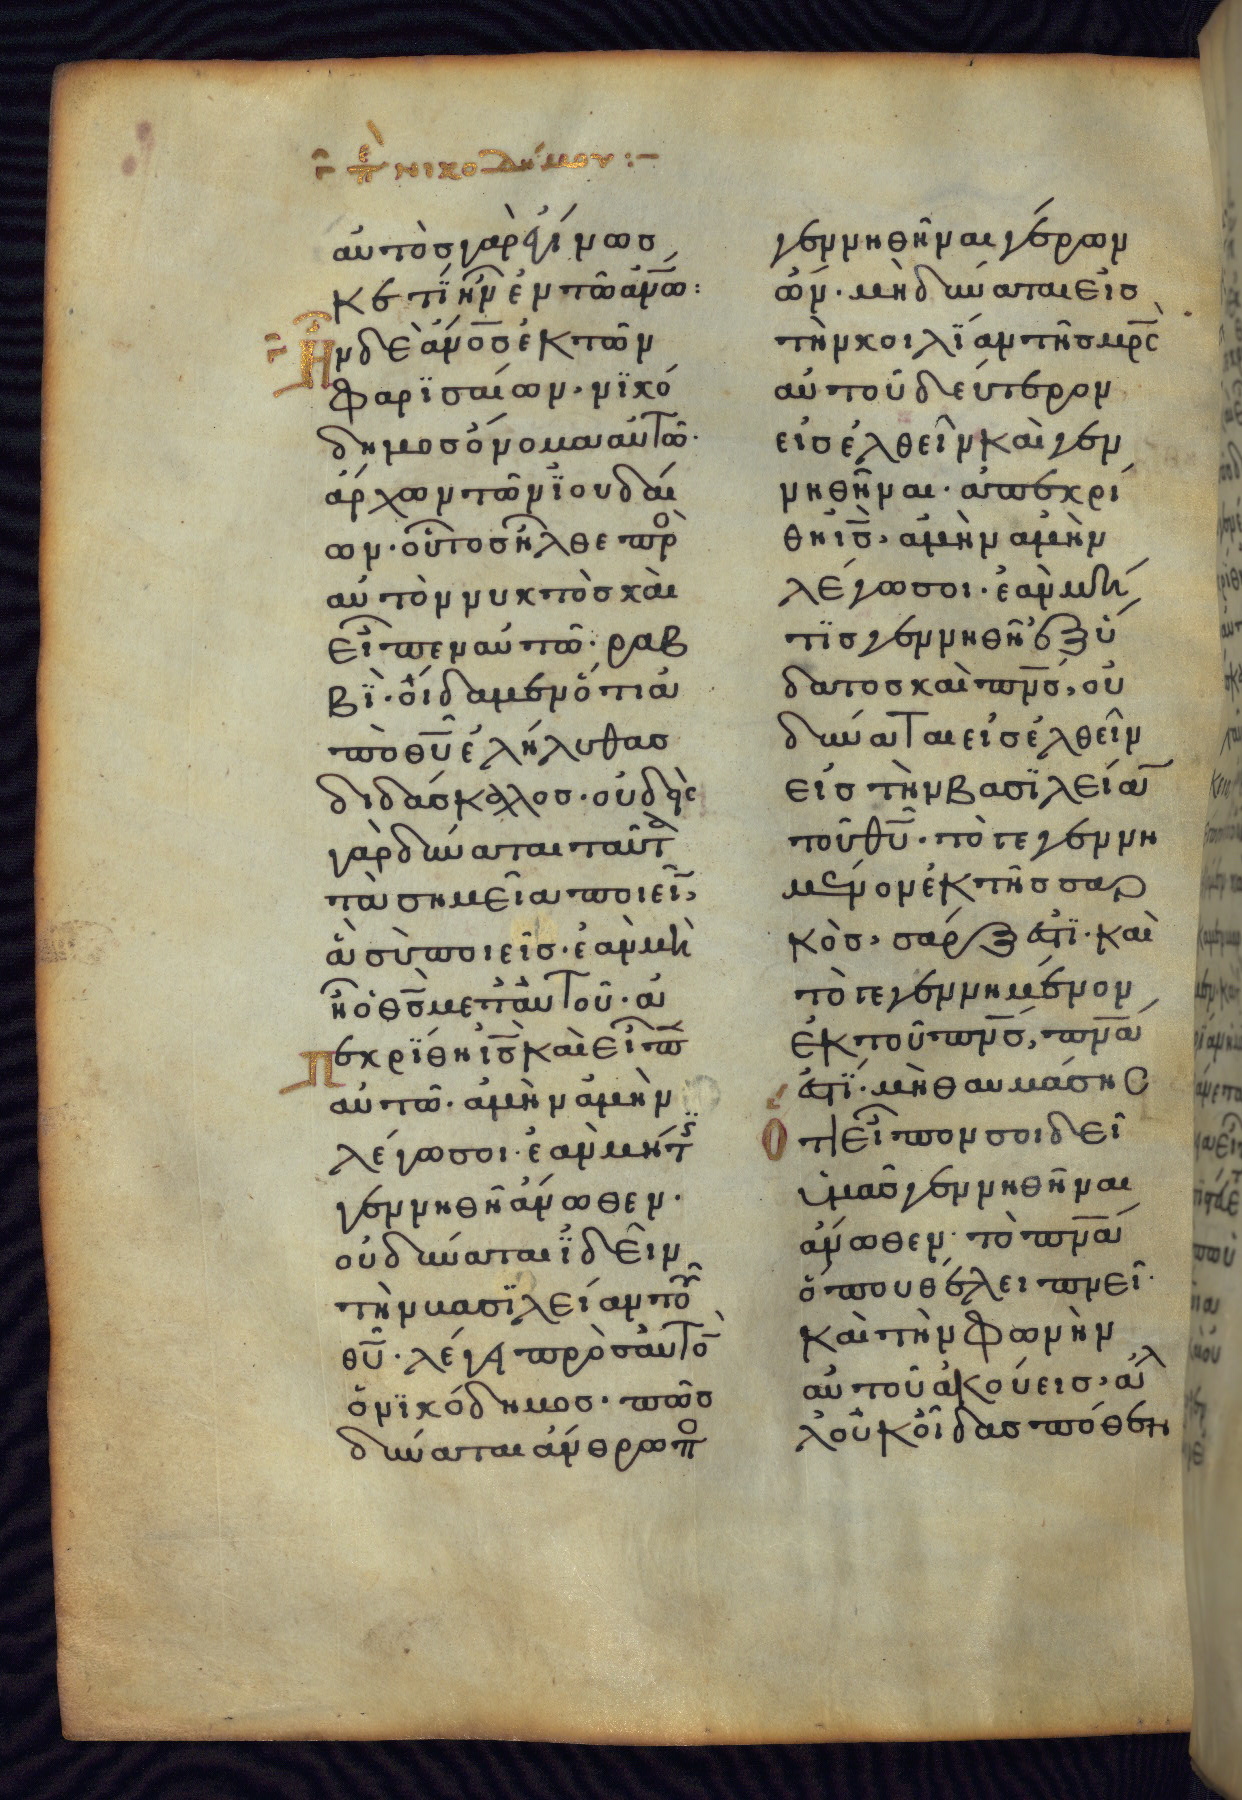 γ̄ πε Νικοδήμου :–
αὐτὸς γὰρ ἐγίνωσ
κε τί ἦν ἐν τῶ ἀνω̅:
γ̄ Ἦν δὲ ἄνο̅σ ἐκ τῶν
φαρϊσαίων· νϊκό
δημος ὄνομα αὐτῶ·
ἄρχων τῶν ϊουδαί
ων· οὗτος ἦλθε πρὸ
αὐτὸν νυκτὸς καὶ
εἶπεν αὐτῶ· ραβ
βΐ· οἴδαμεν ὅτι ἀ
πὸ θυ̅ ἐλήλυθας
διδάσκαλος· οὐδεὶς
γὰρ δύναται ταῦτα
τὰ σημεῖα ποιεῖ̅,
ἃ σὺ ποιεῖς· ἐὰν μὴ
ἦ ὁ θσ̅ μετ' αὐτοῦ· ἀ
πεκρίθη ισ̅ καὶ εἶπε̅
αὐτῶ· ἀμὴν ἀμὴν
λέγω σοι· ἐὰν μή τϊσ
γεννηθῆ ἄνωθεν·
οὐ δύναται ϊδεῖν
τὴν βασϊλείαν τοῦ
θυ̅· λέγει πρὸς αὐτὸ̅
ὁ νϊκόδημος· πῶς
δύναται ἄνθρωπο
γεννηθῆναι γέρων
ὤν· μὴ δύναται εἰς
τὴν κοιλΐαν τῆς μρ̅ς
αὐτοῦ δεύτερον
εἰσελθεῖν καὶ γεν
νηθῆναι· ἀπεκρί
θη ισ̅, ἀμὴν ἀμὴν
λέγω σοι· ἐὰν μή
τϊς γεννηθῆ ἐξ ὕ
δατος καὶ πνσ̅, οὐ
δύναται εἰσελθεῖν
εἰς τὴν βασϊλεία̅
τοῦ θυ̅· τὸ γεγεννη
μένον ἐκ τῆς σαρ
κὸς, σάρξ ἐστϊ· καὶ
τὸ γεγεννημένον
ἐκ τοῦ πνσ̅, πνα̅
ἐστϊ· μὴ θαυμάσης
ὅτι εἶπον σοι δεῖ
ὑμᾶς γεννηθῆναι
ἄνωθεν· τὸ πνα̅
ὅπου θέλει πνεῖ·
καὶ τὴν φωνὴν
αὐτοῦ ἀκούεις, ἀλ
λ' οὐκ οἶδας πόθεν